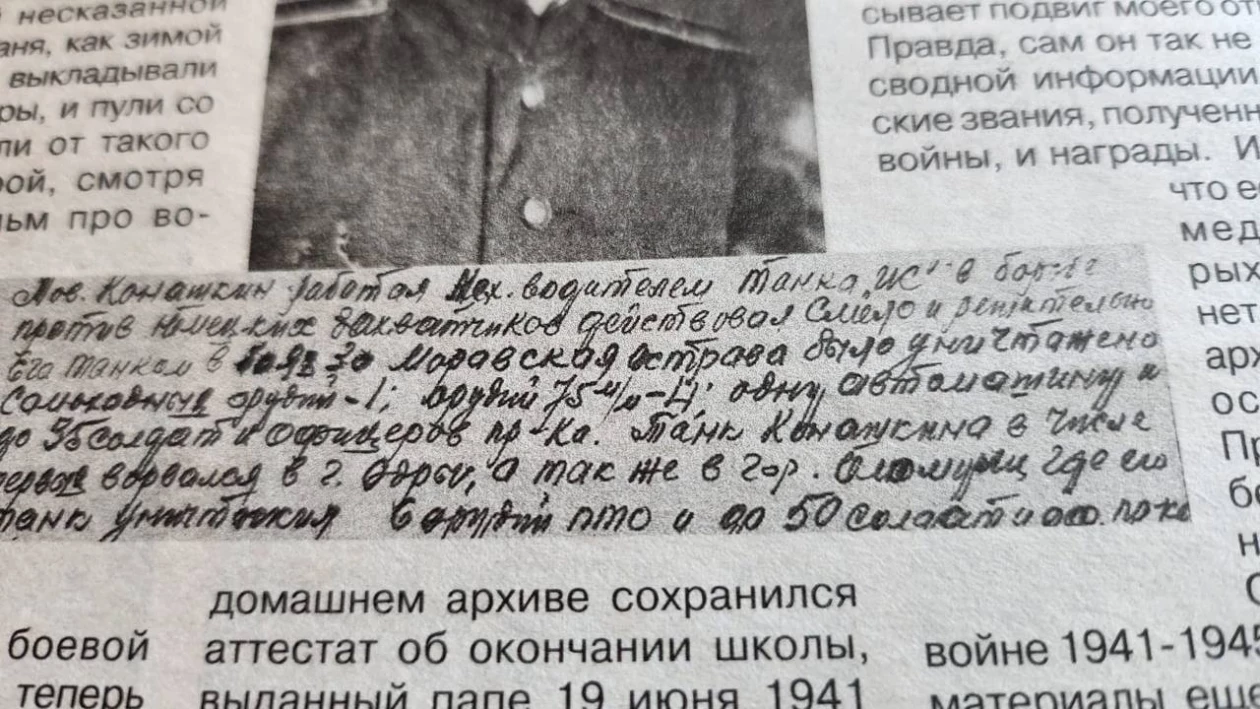 несказанной
аня, как зимой
выкладывали
ры, и пули со
ли от такого
рой, смотря
льм про во-
сывает подвиг моего от
Правда, сам он так не
сводной информации
ские звания, полученн
войны, и награды. И
что е
мед
рых
нет
арх
ос
Пр
бо
н
Тов. Конашкин работая Мех. водителем танка "ИС" в
против Немецких захватчиков действовал Смело и решительно
Его танком в за Моравская острава было уничтажено
Самоходных орудий-1; орудий 75 м/м-4 одну автоматину и
до 35 солдат и офицеров пр-ка. Танк Конашкина в числе
первых ворвался в г. а так же в гор. Оломуоц где его
танк уничтожил 6 орудий пто и до 50 солдат и
домашнем архиве сохранился
аттестат об окончании школы,
выданный папе 19 июня 1941
боевой
теперь
войне 1941-1945
материалы еще